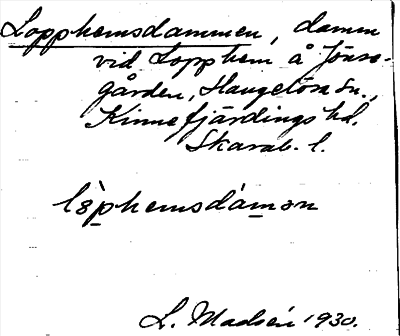 Lopphemsdammen, damm
vid Lopphem å Jöns-
gården, Haugelösa sn.,
Kinnefjärdings hd.
Skarab. l.
lɜphemsdamən
L. Madsén 1930.